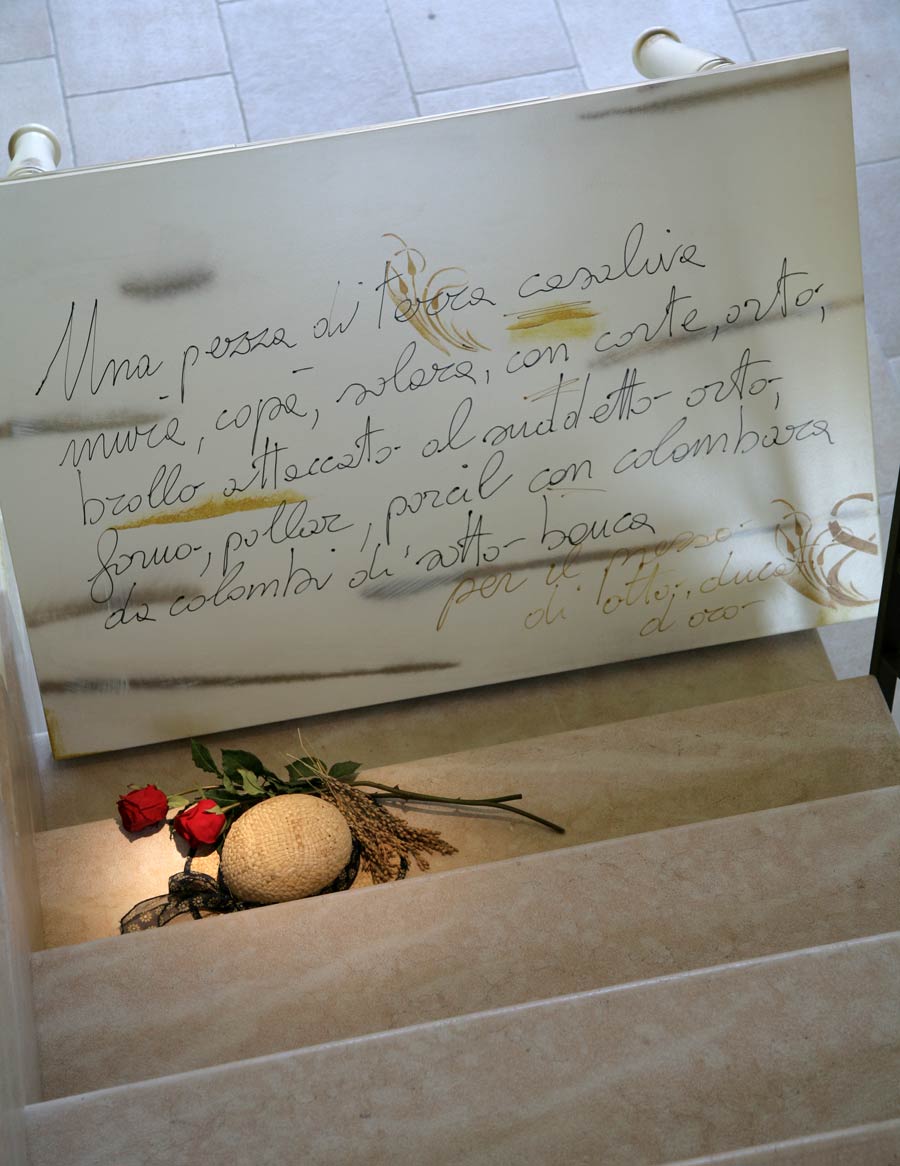 Una pezza di terra casaliva
murà, copà, solara, con corte, orto,
brollo attaccato al suddetto orto,
forno, pollar, porcil con colombara
da colombi di sotto banca
per il prezzo
di otto, ducati
d'oro